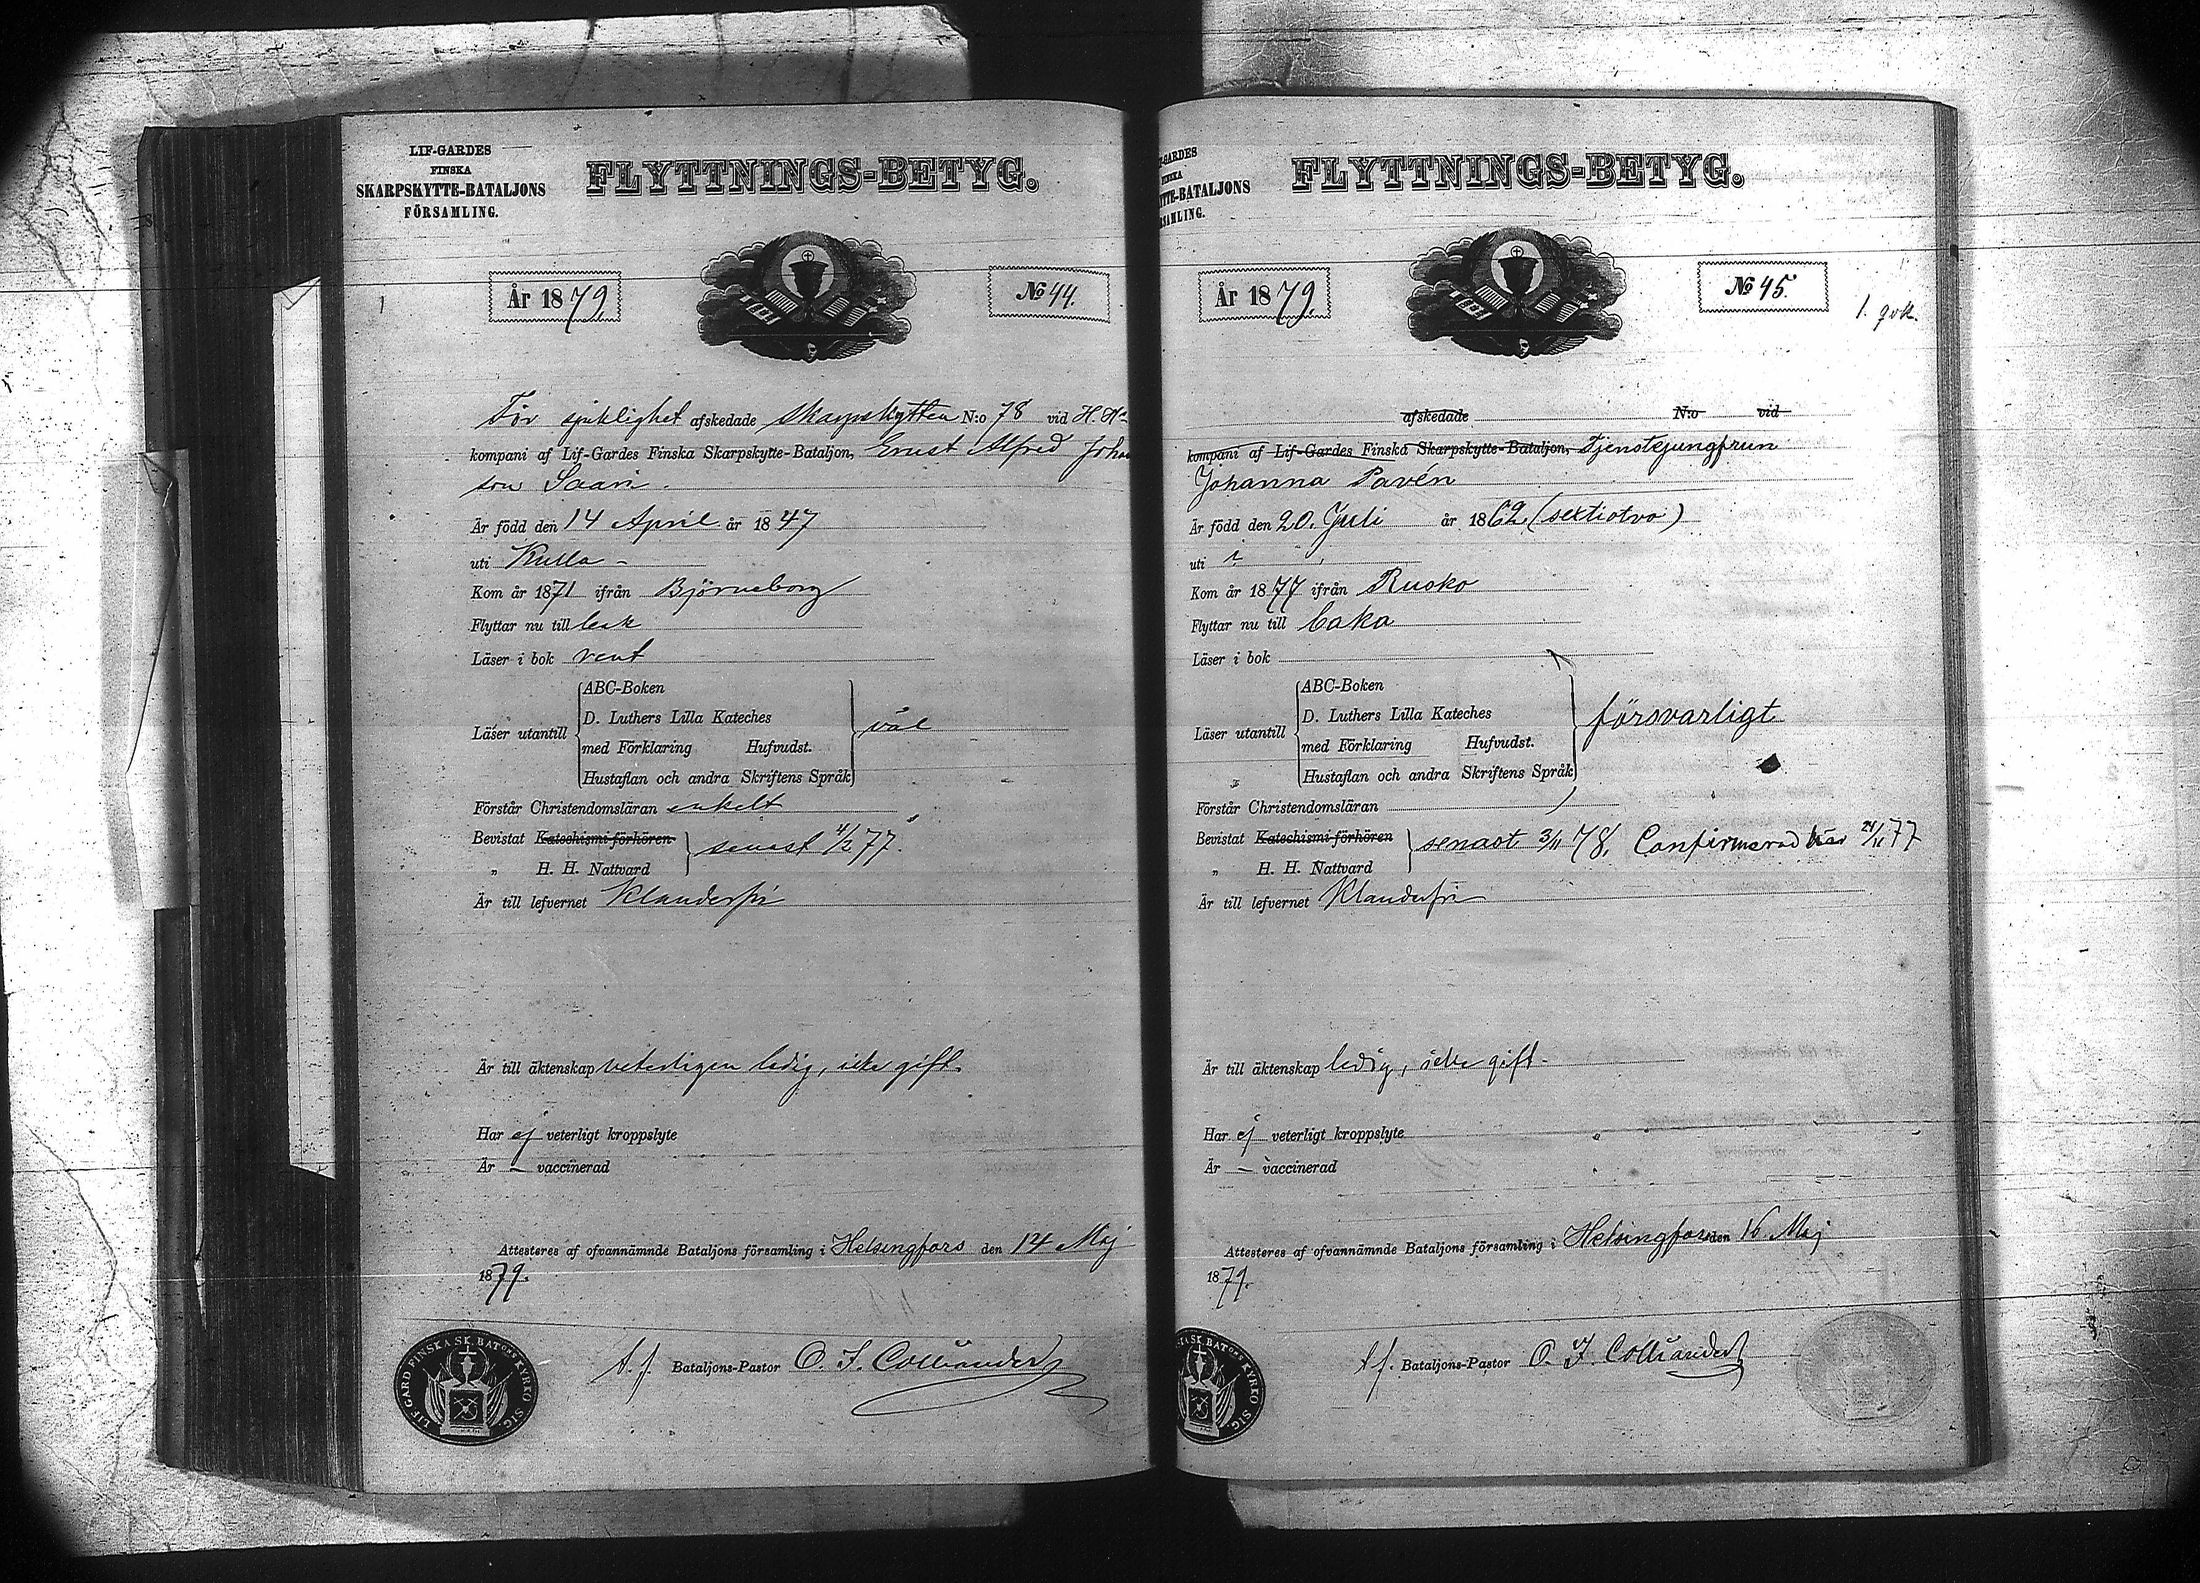 LIF-GARDES
FINSKA
SKARPSKYTTE-BATALJONS
FÖRSAMLING.
FLYTTNINGS-BETYG.
År 1879.
No 44.
För sjuklighet afskedade skarpskytten N:o 78 vid H. K.
kompani af Lif-Gardes Finska Skarpskytte-Bataljon, Ernst Alfred Johan
son Saari.
Är född den 14 April år 1847
uti Kulla
Kom år 1871 ifrån Björneborg
Flyttar nu till
Läser i bok rent
Läser utantill
ABC-Boken
D. Luthers Lilla Kateches
med Förklaring Hufvudst.
Hustaflan och andra Skriftens Språk
väl
Förstår Christendomsläran enkelt
Bevistat Katechismi-förhören
„ H. H. Nattvard
senast 4/2 77.
Är till lefvernet Klanderfri
Är till äktenskap veterligen ledig, icke gift.
Har ej veterligt kroppslyte
Är – vaccinerad
Attesteras af ofvannämnde Bataljons församling i Helsingfors den 14 Maj
1879.
LIF GARD FINSKA SK. BATONS KYRKO SIG.
t. f. Bataljons-Pastor O. F. Colliander
F-GARDES
TTE-BATALJONS
FLYTTNINGS-BETYG.
År 1879.
No 45.
afskedade N:o vid
kompani af Lif-Gardes Finska Skarpskytte-Bataljon, Tjenstejungfrun
Johanna Pavén
Är född den 20. Juli år 1862 (sextiotvo)
uti ?
Kom år 1877 ifrån Rusko
Flyttar nu till
Läser i bok
Läser utantill
„
ABC-Boken
D. Luthers Lilla Kateches
med Förklaring Hufvudst.
Hustaflan och andra Skriftens Språk
försvarligt
Förstår Christendomsläran
Bevistat Katechismi-förhören
„ H. H. Nattvard
senast 3/11 78. Confirmerad här 24/11 77
Är till lefvernet Klanderfri
Är till äktenskap ledig, icke gift.
Har ej veterligt kroppslyte
Är – vaccinerad
Attesteras af ofvannämnde Bataljons församling i Helsingfors den 16. Maj
1879.
SK. BATONS KYRKO SIG.
t. f. Bataljons-Pastor O. F. Colliander